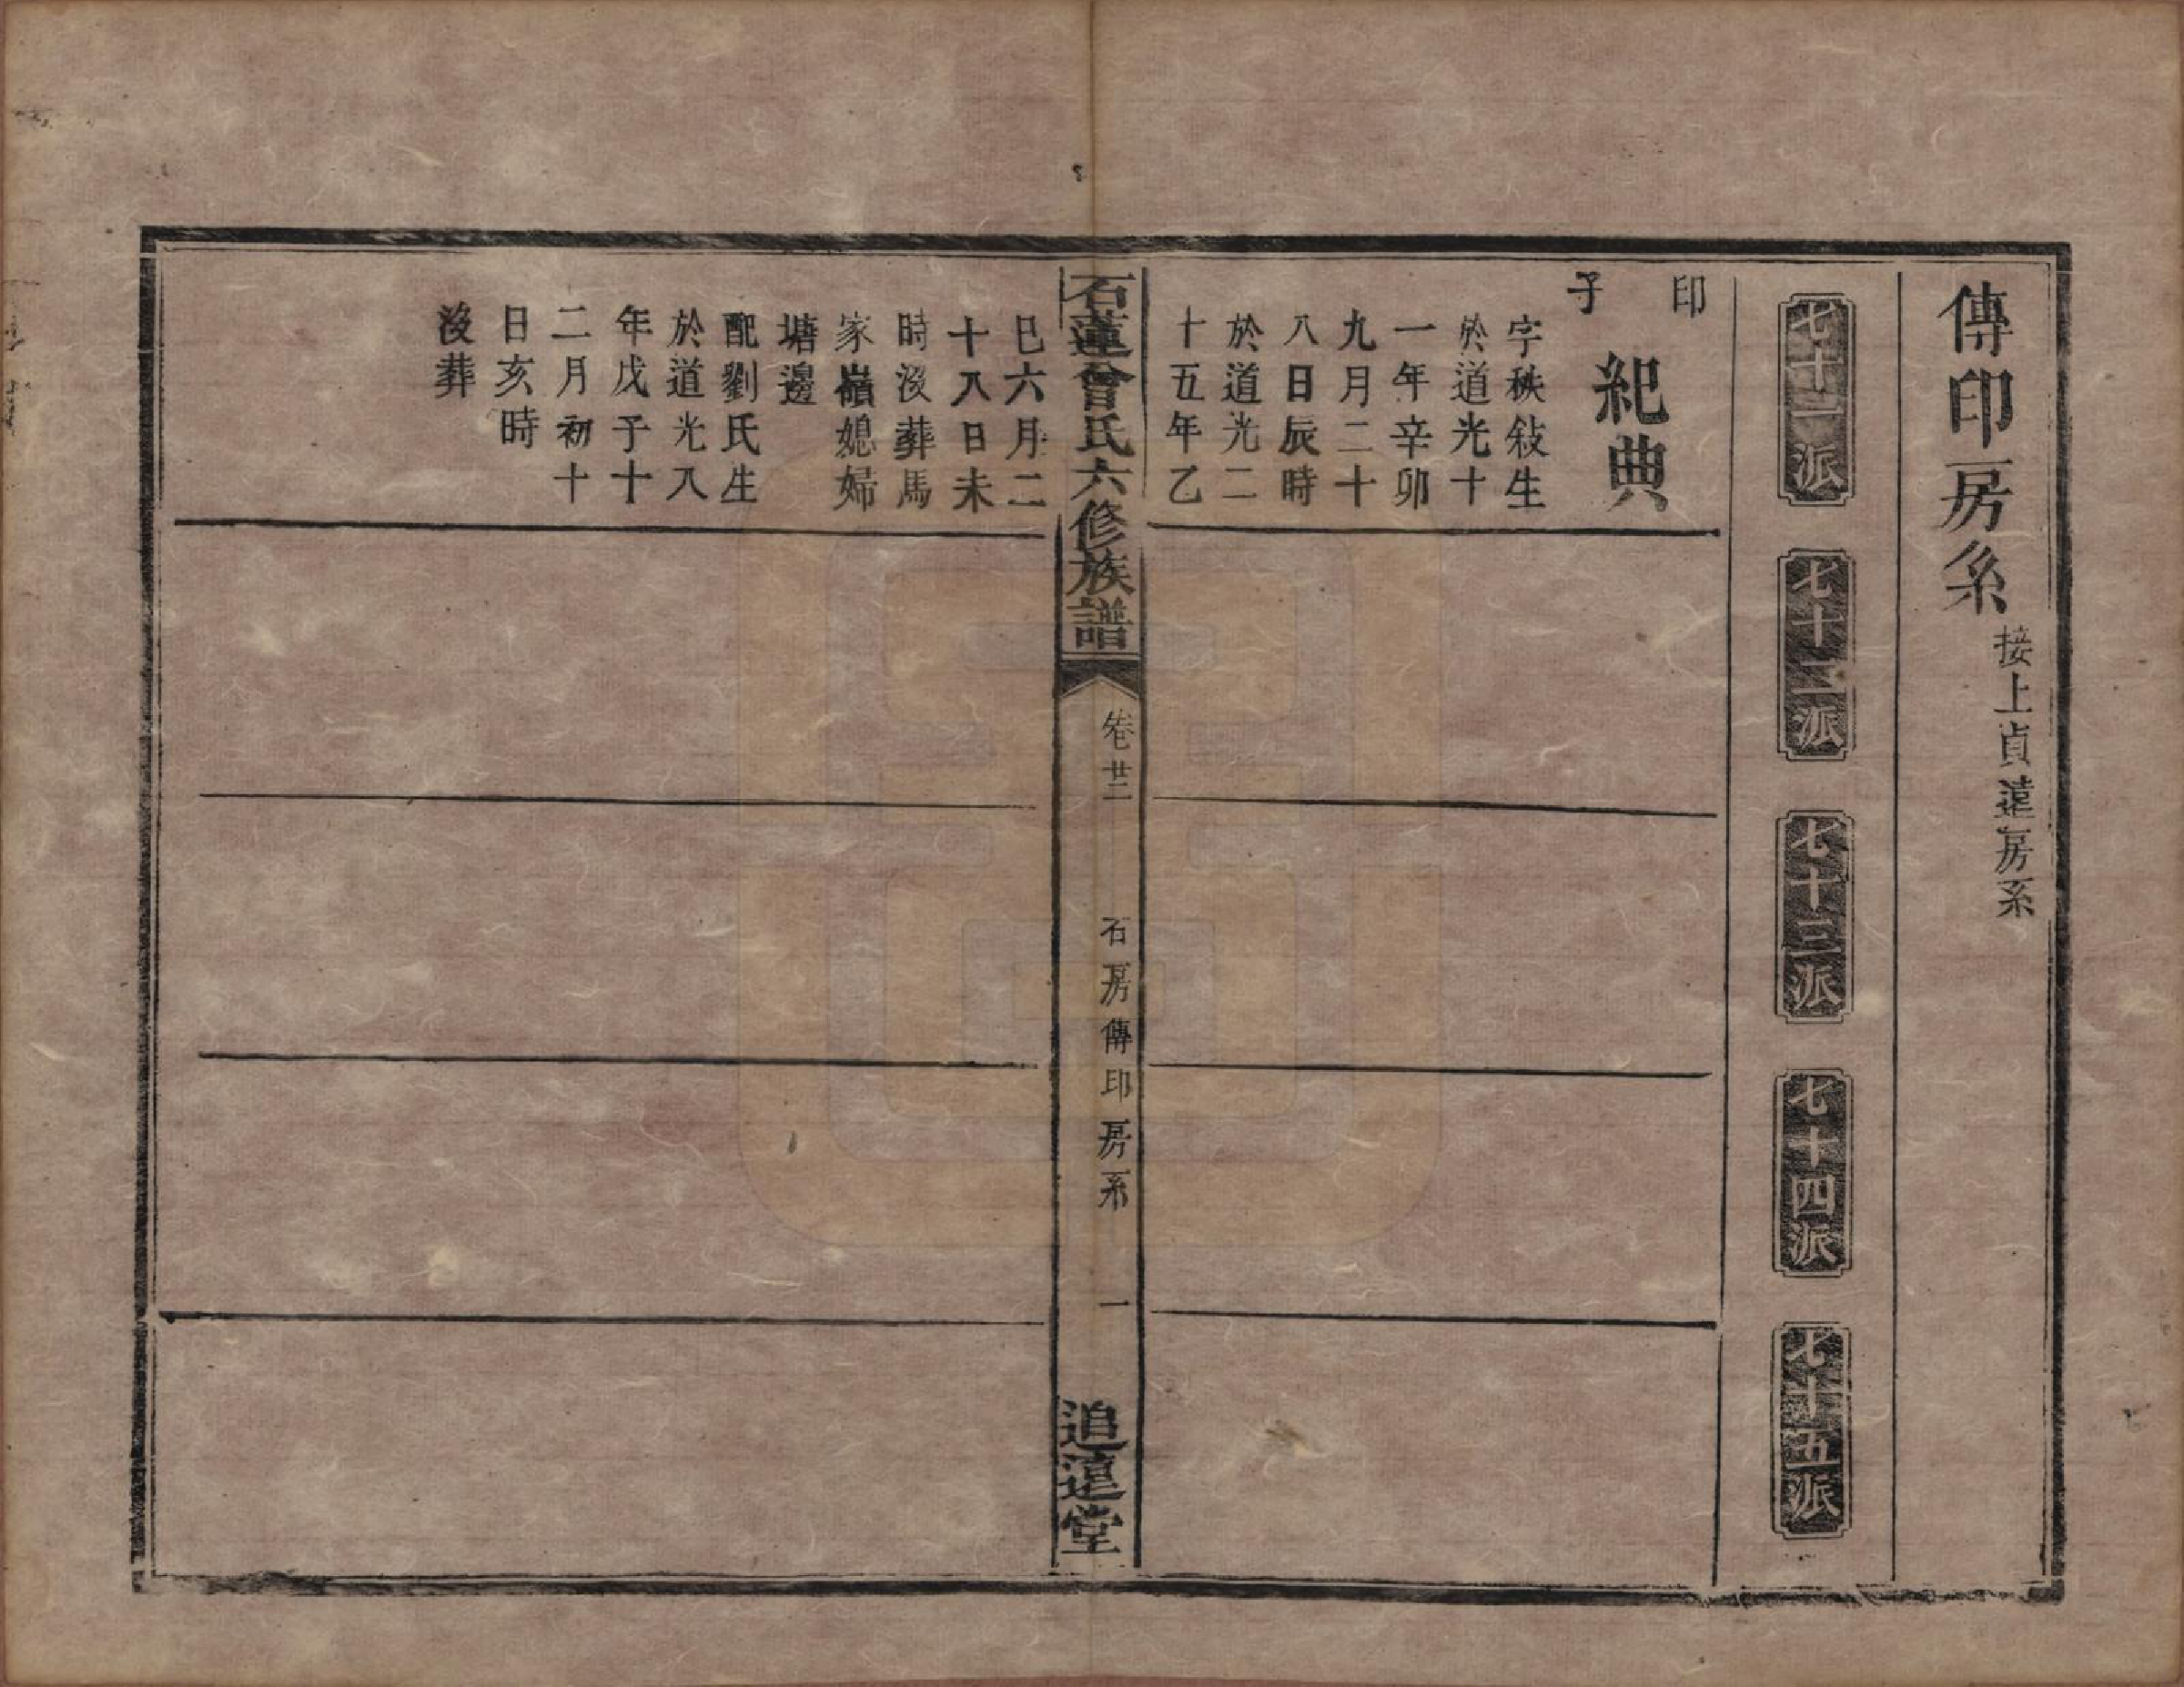 傳印房系
接上貞遠房系
七十一派
七十二派
七十三派
七十四派
七十五派
印
子
紀典
字秩敍生
於道光十
一年辛卯
九月二十
八日辰時
於道光二
十五年乙
石蓮曾氏六修族譜
卷廿二
石房傳印房系
一
追遠堂
巳六月二
十八日未
時沒葬馬
家嶺媳婦
塘邊
配劉氏生
於道光八
年戊子十
二月初十
日亥時
沒葬